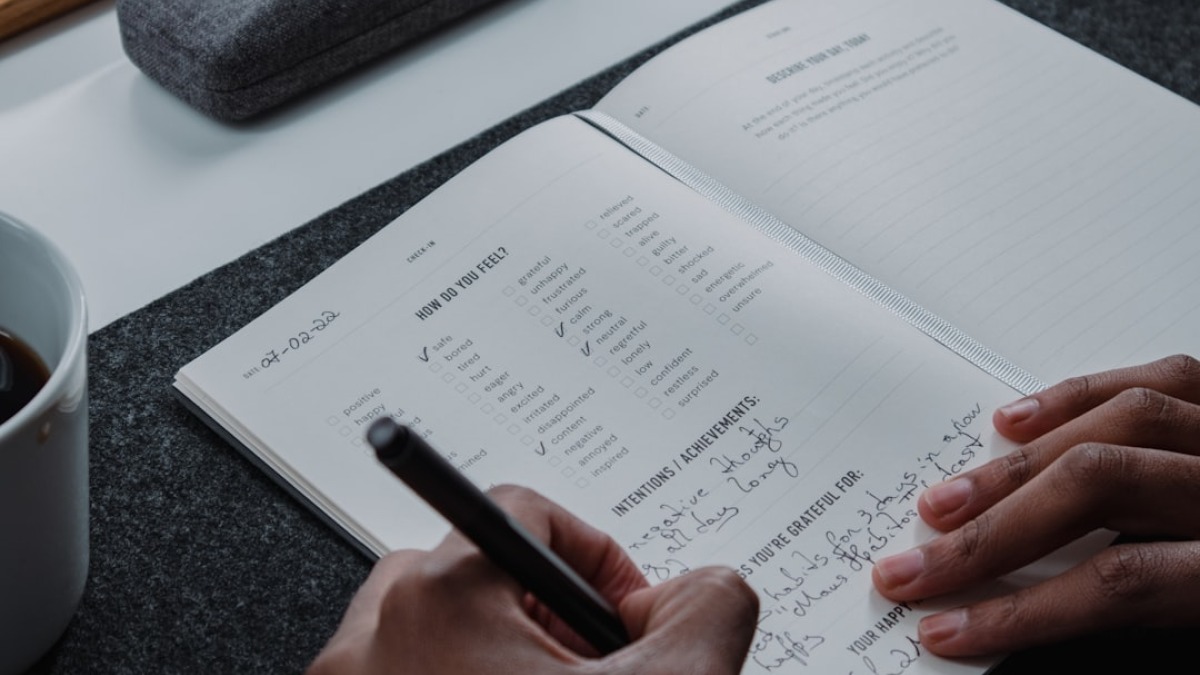 CHECK-IN
DATE: 07-02-22
HOW DO YOU FEEL?
positive
happy
safe
bored
tired
hurt
eager
angry
excited
irritated
disappointed
content
negative
annoyed
inspired
grateful
unhappy
frustrated
furious
calm
strong
neutral
regretful
lonely
low
confident
restless
surprised
relieved
scared
trapped
alive
guilty
bitter
shocked
sad
energetic
overwhelmed
unsure
INTENTIONS / ACHIEVEMENTS:
negative thoughts
all day long
YOU'RE GRATEFUL FOR:
habits for 3 days in a row
habits podcast
happy
YOUR HAPPY
DATE:
DESCRIBE YOUR DAY, TODAY
At the end of your day,
how each thing made you feel.
do it? Is there anything you would have